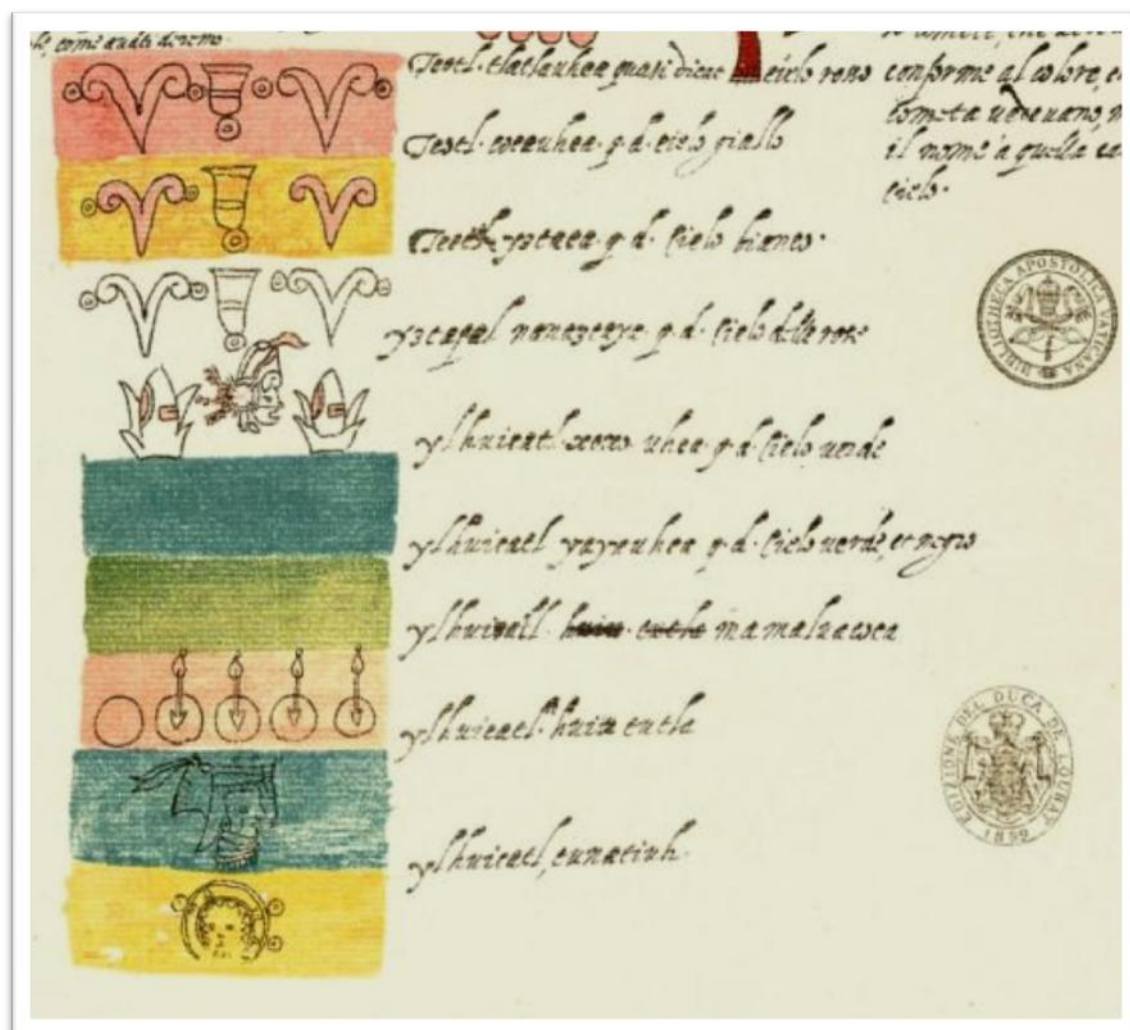 Teotl. tlatlauhca quasi dicat cielo
Teotl. cocauhca. q. d. cielo giallo
Teotl. yztaca. q. d. Cielo bianco.
yztapal nanazcaya. q. d. Cielo delle rose
ylhuicatl. xoxo uhca q. d. Cielo verde
ylhuicatl yayauhca q. d. Cielo verde, et negro
ylhuicatl. mamaluacoca
ylhuicatl. huixtutla
ylhuicatl, tunatiuh.
conforme al colore, e
cometa vedevano,
il nome a quella ca
cielo.
BIBLIOTHECA APOSTOLICA VATICANA
EDIZIONE DEL DUCA DE LOUBAT